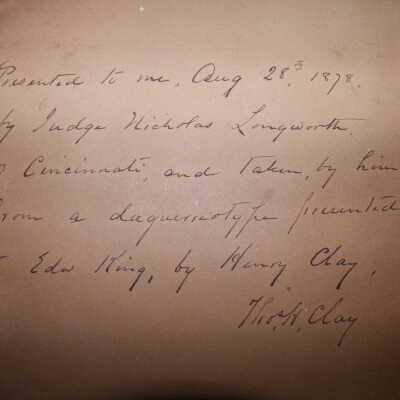 Presented to me, Aug 28th, 1878.
by Judge Nicholas Longworth.
Cincinnati, and taken, by him
from a daguerreotype presented
Edw King, by Henry Clay,
Thos. H. Clay